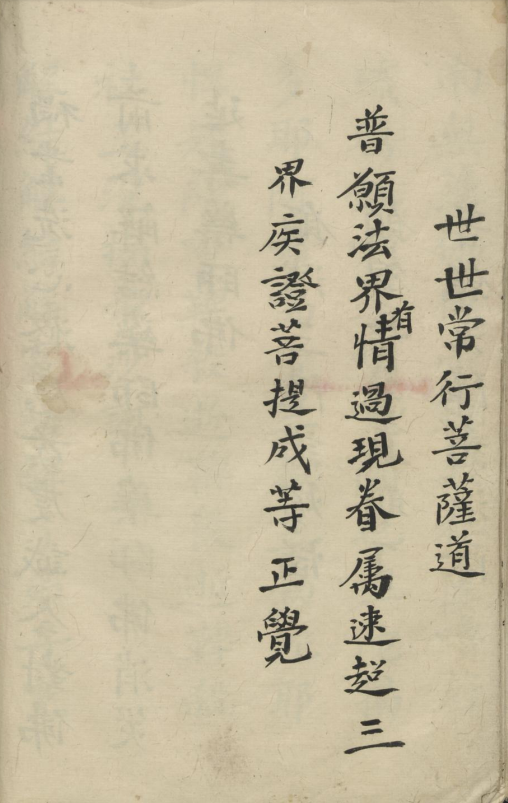 世世常行菩薩道
普願法界有情過現眷属速超三
界疾證菩提成等正覺